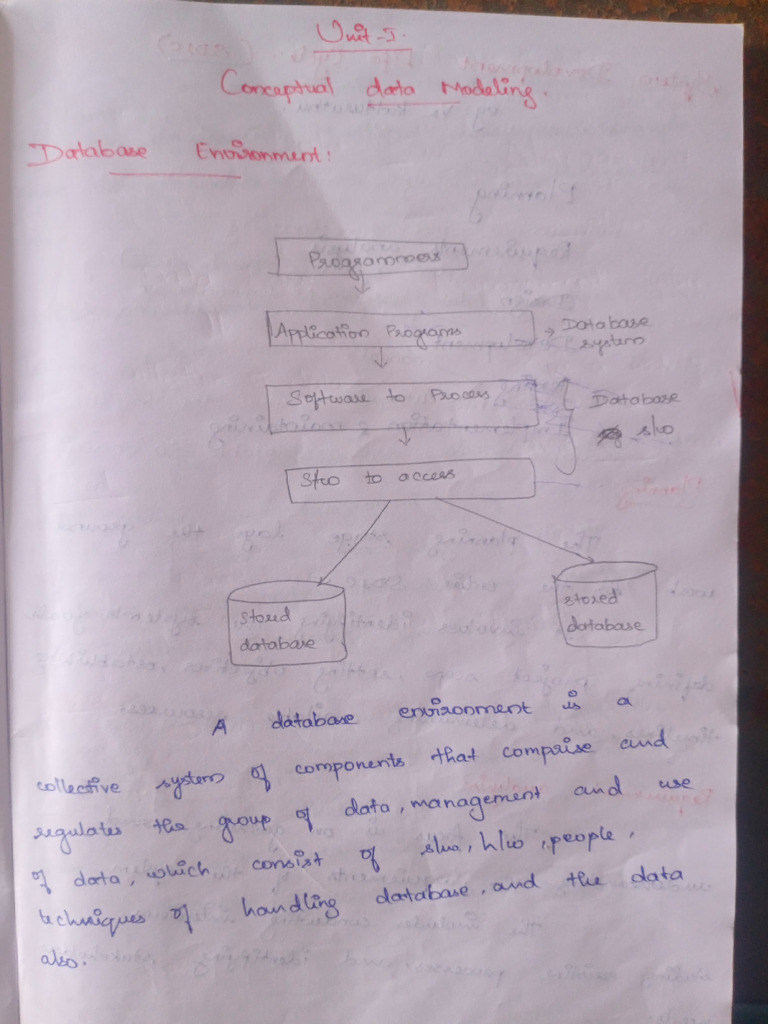 Unit-I.
Conceptual data Modeling.
Database Environment:
Programmers
Application Programs
Database system
Software to Process
Database s/w
S/w to access
stored database
stored database
A database environment is a
collective system of components that comprise and
regulates the group of data, management and use
of data, which consist of s/w, h/w, people,
techniques of handling database, and the data
also.